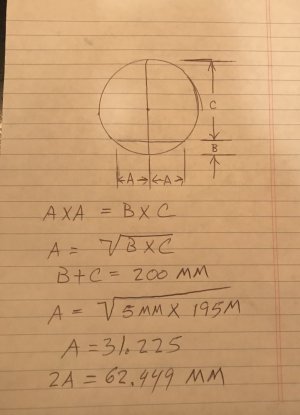 C
B
A A
A X A = B X C
A = √B X C
B + C = 200 MM
A = √5MM X 195M
A = 31.225
2A = 62.449 MM